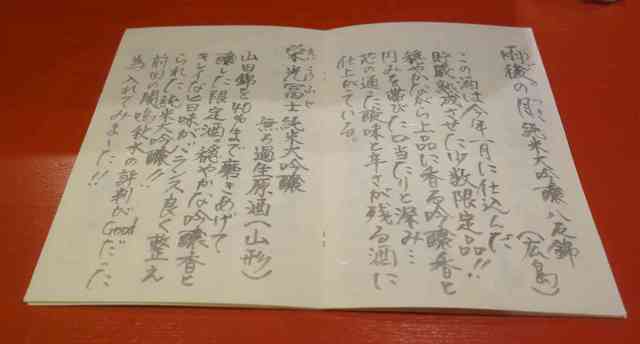 雨後の月 純米大吟醸 八反錦
うご つき
(広島)
この酒は今年一月に仕込んだ
貯蔵熟成させた少数限定品!!
穏やかながら上品に香る吟醸香と
円みを帯びた口当たりと深み…
芯の通った酸味と辛さが残る酒に
仕上がている。
栄光冨士 純米大吟醸
えいこうふじ
無ろ過生原酒(山形)
山田錦を40%まで磨きあげて
醸した限定酒。穏やかな吟醸香と
キレイな旨味がバランス良く整え
られた純米大吟醸!!
前回の闇鳴秋水の評判がGoodだった
為、入れてみました!!